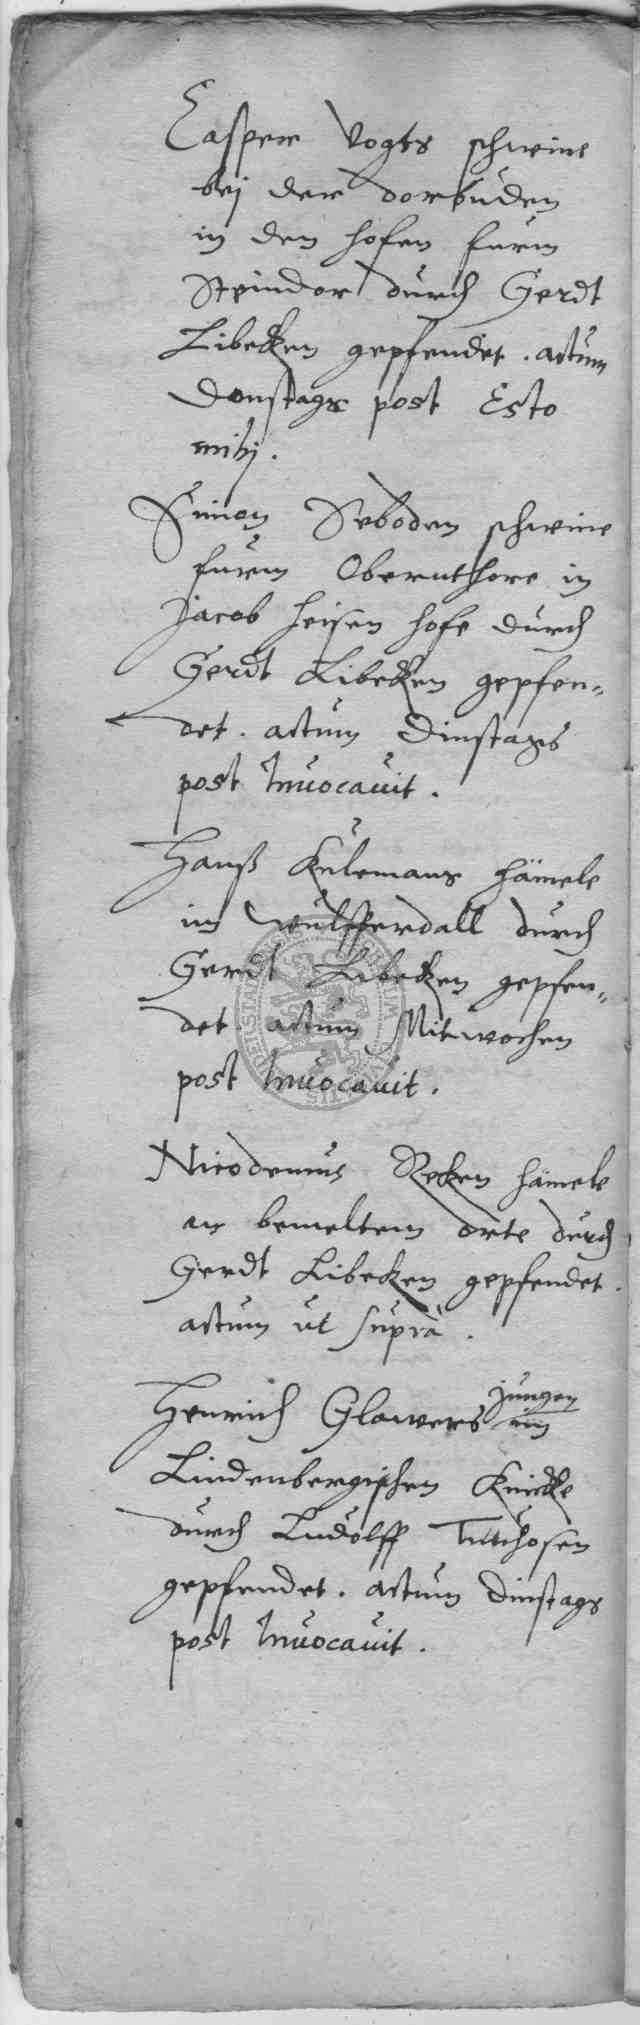 Casper Vogts schweine
bej der dorbuden
in den hofen furm
Steindor durch Gerdt
Libecken gepfendet. actum
Donstags post Esto
mihj.
Simon Seboden schweine
furm Obernthore in
Jacob Heisen hofe durch
Gerdt Libecken gepfen=
det. actum Dinstags
post Inuocauit.
Hanß Kulemans hämele
im Wulfferdall durch
Gerdt Libecken gepfen=
det. actum Mitwochen
post Inuocauit.
Nicodemus Reken hämele
an bemeltem orte durch
Gerdt Libecken gepfendet.
actum ut suprà.
Henrich Glawers jungen im
Lindenbergischen Knicke
durch Ludolff
gepfendet. actum Dinstags
post Inuocauit.